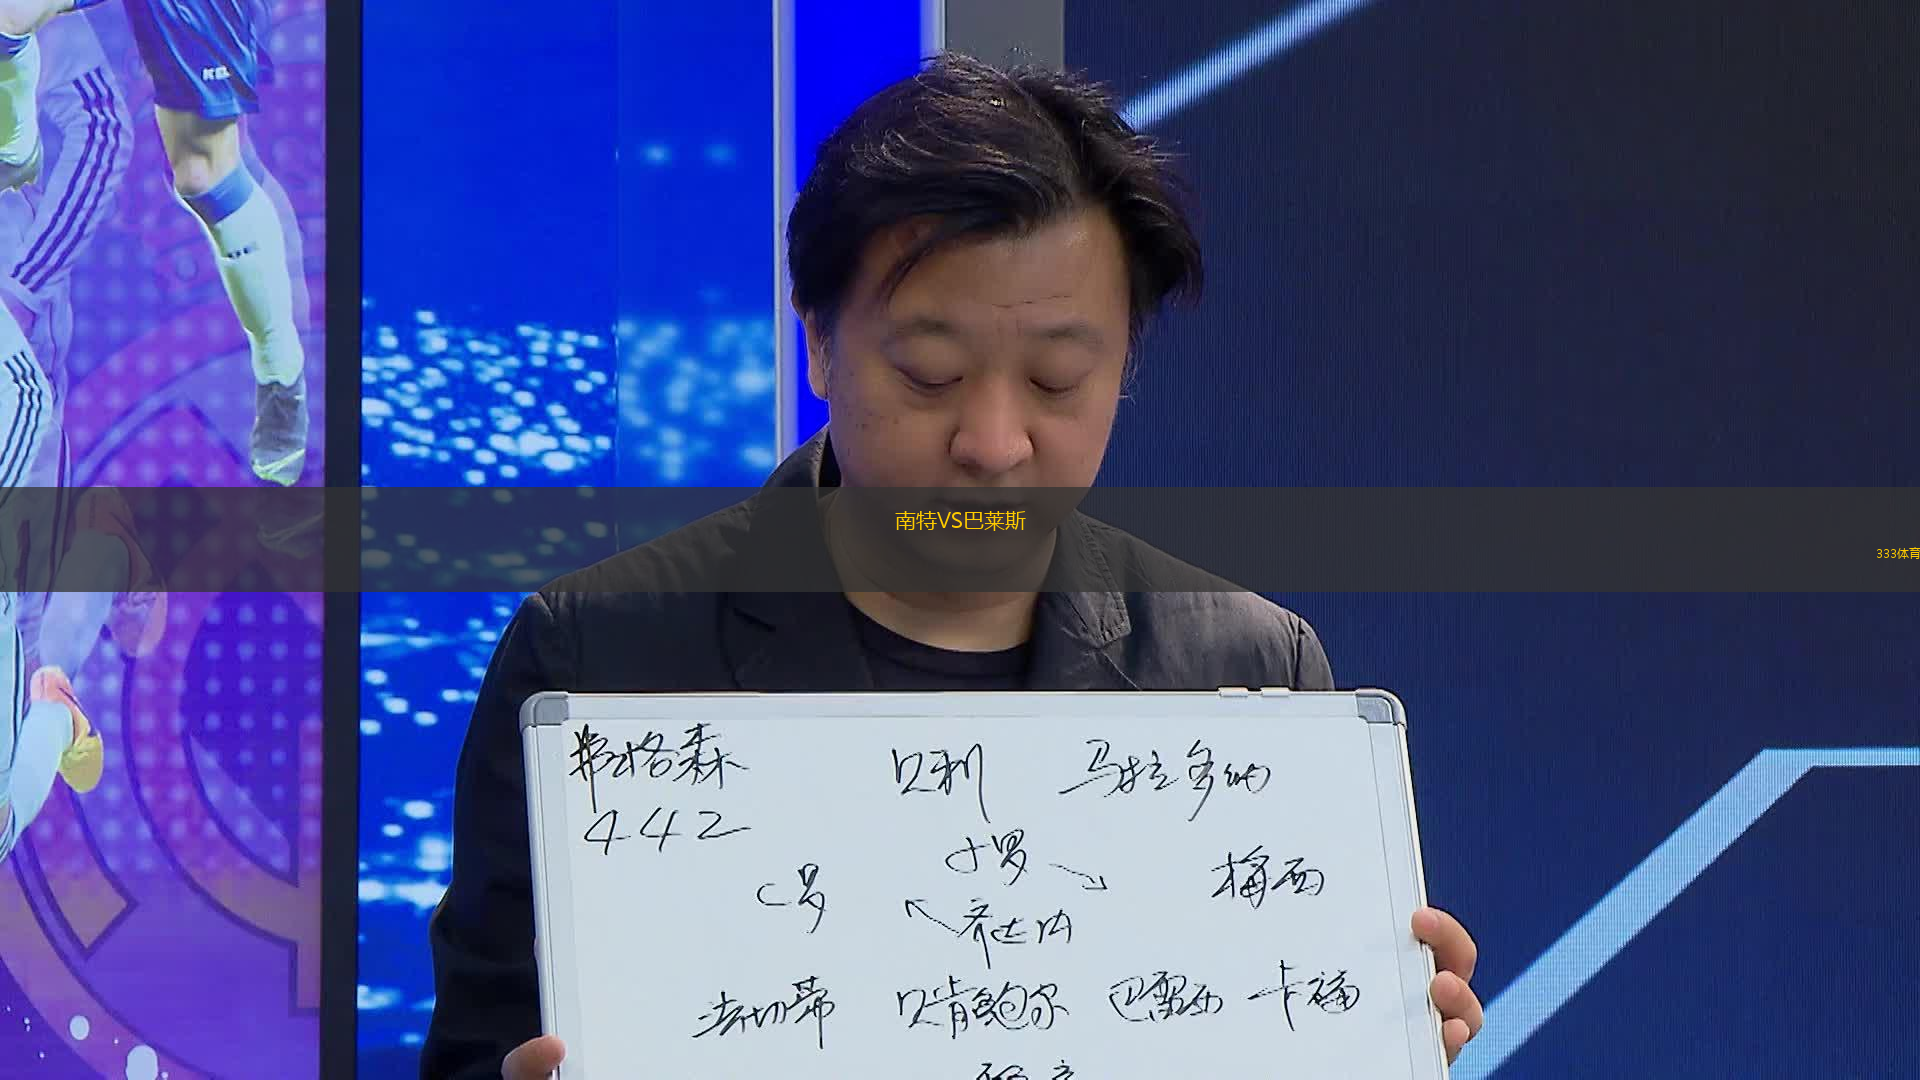 南特VS巴莱斯
333体育
弗格森 贝利 马拉多纳
442
小罗
C罗 梅西
齐达内
法切蒂 贝肯鲍尔 巴雷西 卡福